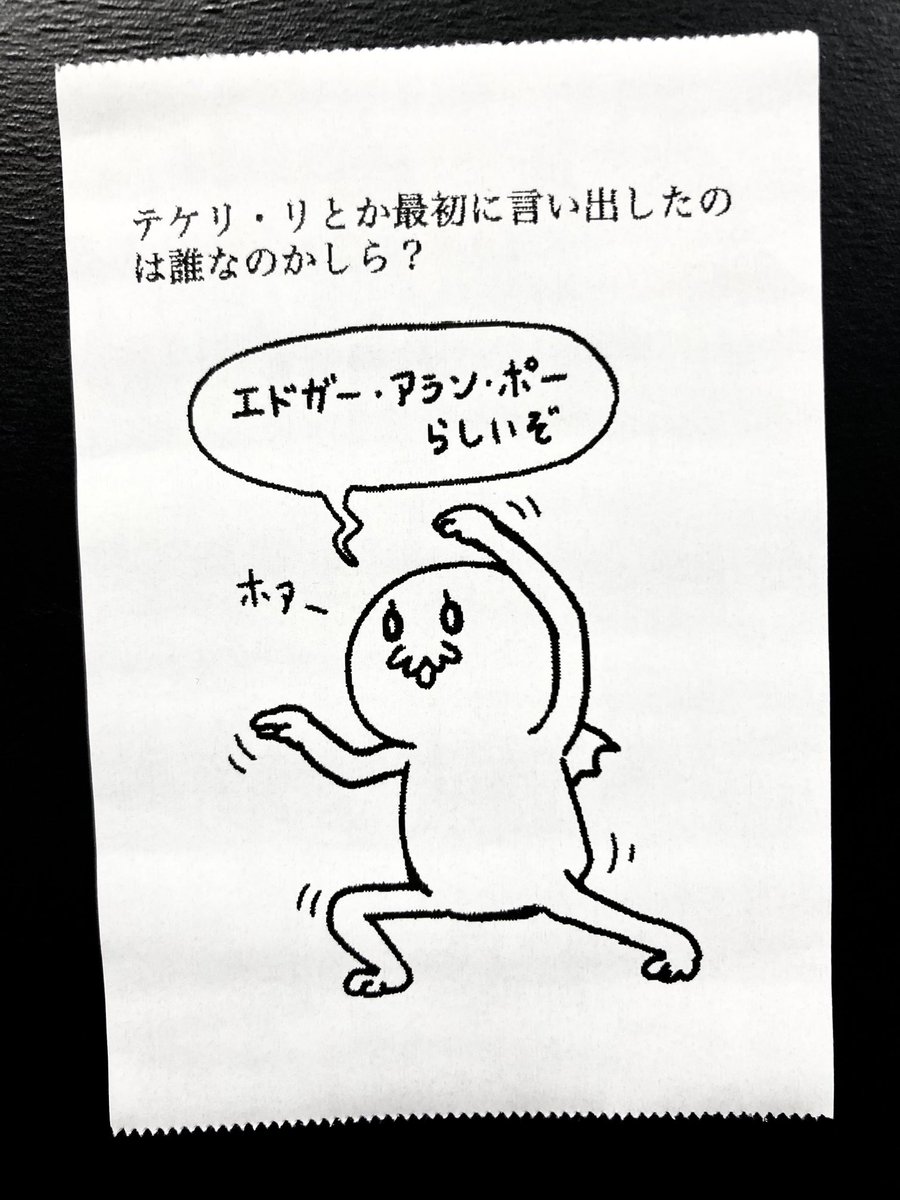 テケリ・リとか最初に言い出したの
は誰なのかしら？
エドガー・アラン・ポー
らしいぞ
ホアー